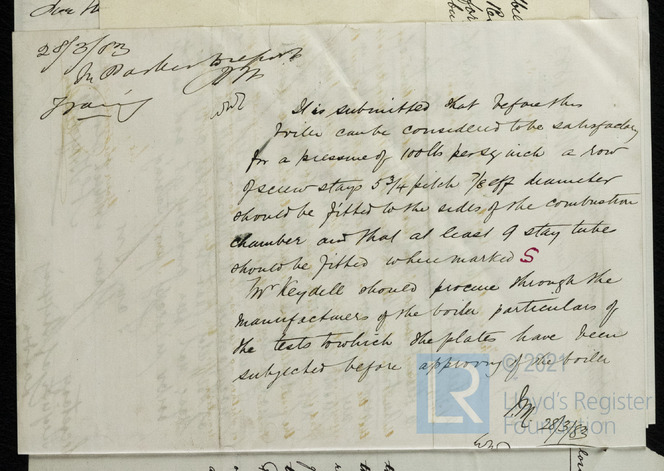 28/3/83
Mr Barber to report
It is submitted that before this
boiler can be considered to be satisfactory
for a pressure of 100 lbs per sq inch a row
of screw stays 5 3/4 pitch 7/8 eff diameter
should be fitted to the sides of the combustion
chamber and that at least 9 stay tubes
should be fitted where marked S
Mr Keydell should procure through the
manufacturers of the boiler particulars of
the tests to which the plates have been
subjected before approving of the boiler
28/3/83
© 2021
LR
Lloyd's Register
Foundation